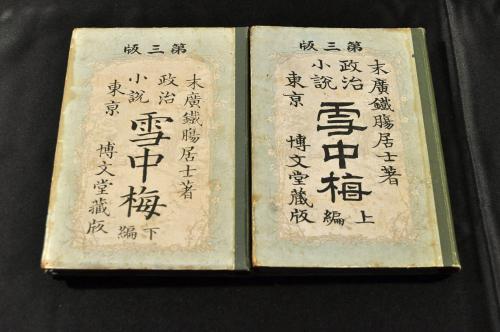 第三版
末廣鐵腸居士著
政治
小說
雪中梅
上編
東京
博文堂藏版
第三版
末廣鐵腸居士著
政治
小說
雪中梅
下編
東京
博文堂藏版